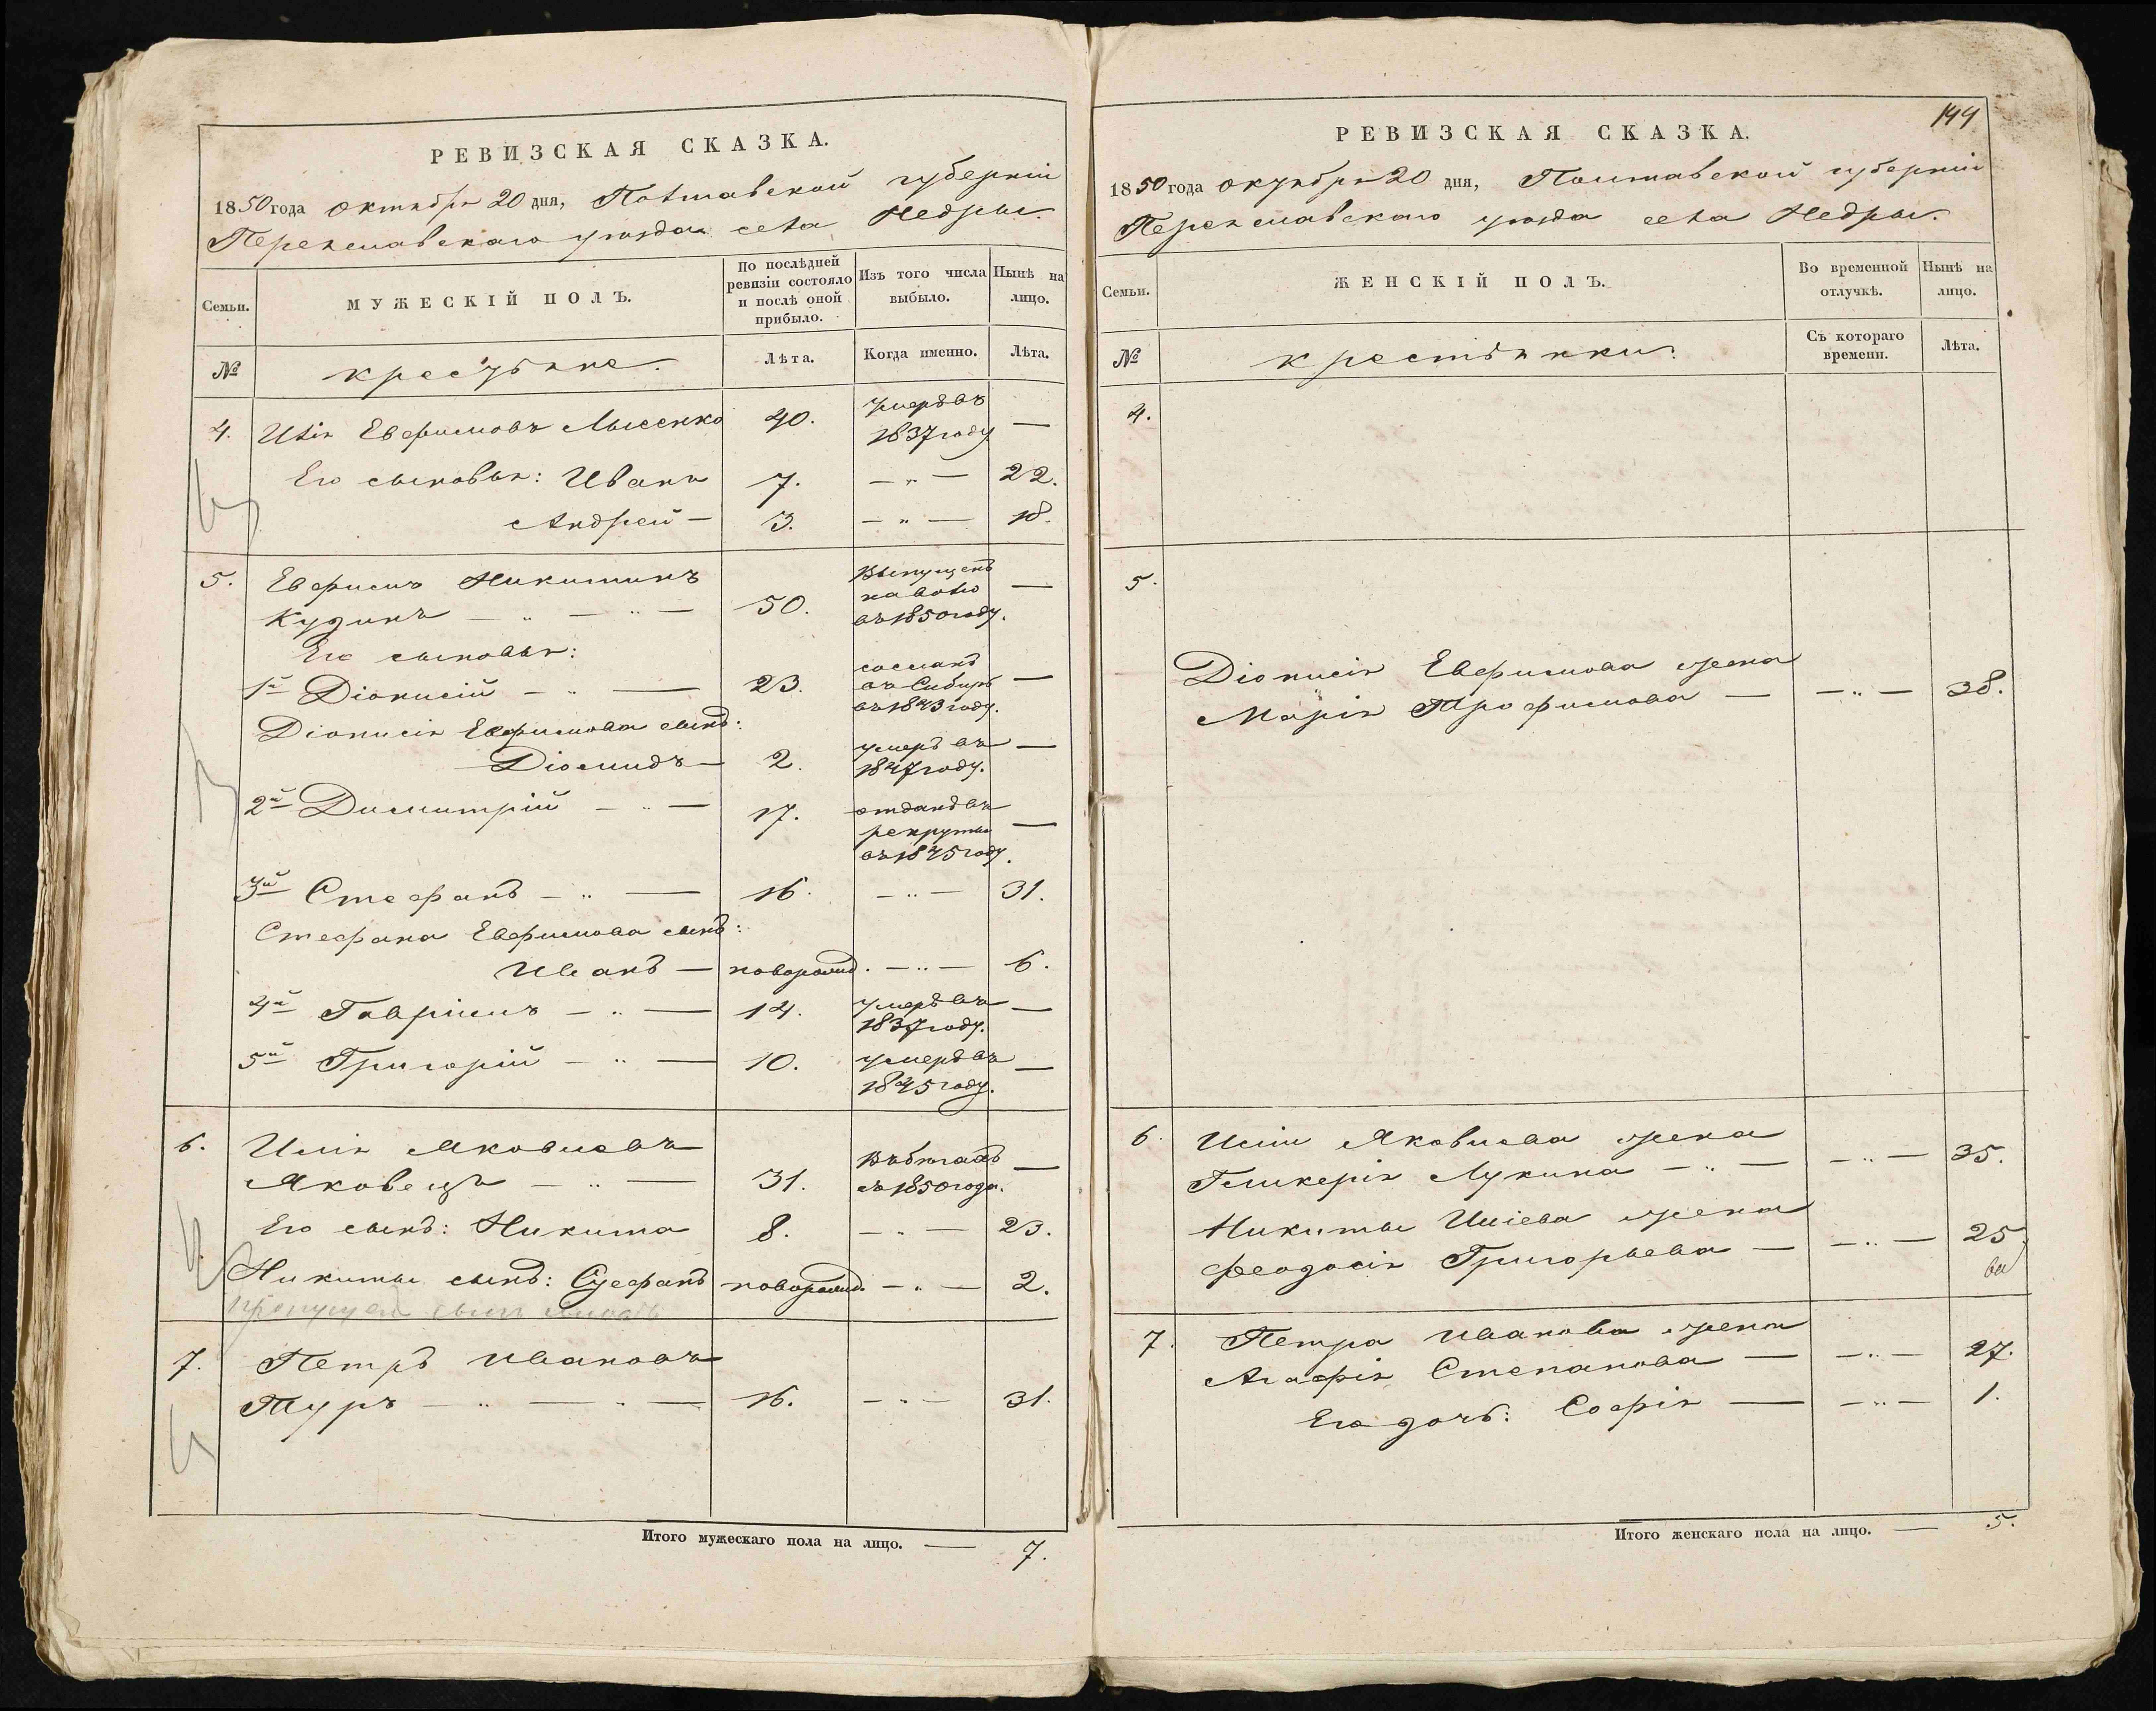 РЕВИЗСКАЯ СКАЗКА.
1850 года октября 20 дня, Полтавской губерніи
Переяславскаго уезда села Недры.
Семьи.
МУЖЕСКІЙ ПОЛЪ.
По послѣдней ревизіи состояло и послѣ оной прибыло.
Изъ того числа выбыло.
Нынѣ на лицо.
№
крестьяне.
Лѣта.
Когда именно.
Лѣта.
4. Илія Евфимовъ Лысенко 40. умеръ въ 1837 году —
Его сыновья: Иванъ 7. — „ — 22.
Андрей — 3. — „ — 18.
5. Евфимъ Никитинъ
Кузинъ — „ — „ — 50. Выпущенъ на волю въ 1850 году. —
Его сыновья:
1й Діонисій — „ — 23. сосланъ въ Сибирь въ 1843 году. —
Діонисія Евфимова сынъ:
Діомидъ — 2. умеръ въ 1847 году. —
2й Димитрій — „ — 17. отданъ въ рекруты въ 1845 году. —
3й Стефанъ — „ — 16. — „ — 31.
Стефана Евфимова сынъ:
Иванъ — новорожд. — „ — 6.
4й Гавріилъ — „ — 14. умеръ въ 1837 году. —
5й Григорій — „ — 10. умеръ въ 1845 году. —
6. Илія Яковлевъ
Яковецъ — „ — 31. Въ бегахъ съ 1850 года. —
Его сынъ: Никита 8. — „ — 23.
Никиты сынъ: Стефанъ новорожд. — „ — 2.
пропущен сын
7. Петръ Ивановъ
Туръ — „ — „ — 16. — „ — 31.
Итого мужескаго пола на лицо. — 7.
144
РЕВИЗСКАЯ СКАЗКА.
1850 года октября 20 дня, Полтавской губерніи
Переяславскаго уезда села Недры.
Семьи.
ЖЕНСКІЙ ПОЛЪ.
Во временной отлучкѣ.
Нынѣ на лицо.
№
крестьянки.
Съ котораго времени.
Лѣта.
4.
5.
Діонисія Евфимова жена
Марія Трофимова — — „ — 38.
6. Иліи Яковлева жена
Гликерія Лукина — „ — — „ — 35.
Никиты Иліева жена
Феодосія Григорьева — — „ — 25.
7. Петра Иванова жена
Агафія Степанова — — „ — 27.
Его дочь: Софія — — „ — 1.
Итого женскаго пола на лицо. — 5.